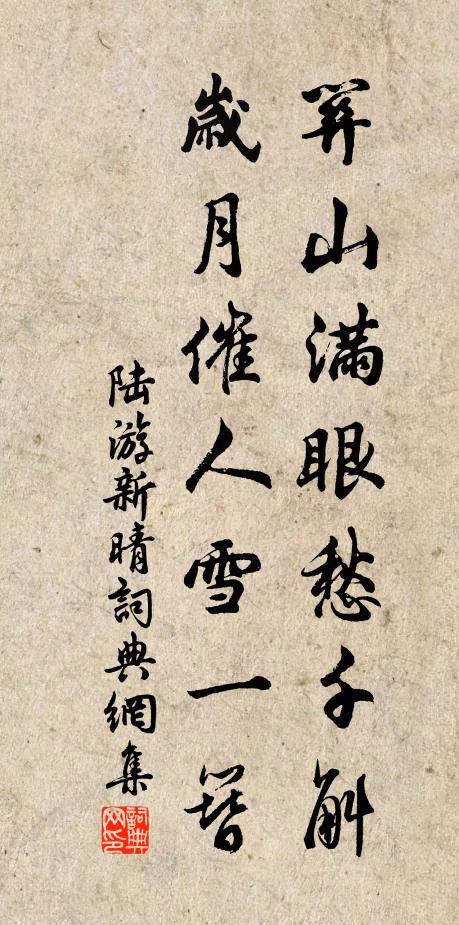 關山滿眼愁千斛
歲月催人雪一簪
陸游新晴詞典網集
詞典网印